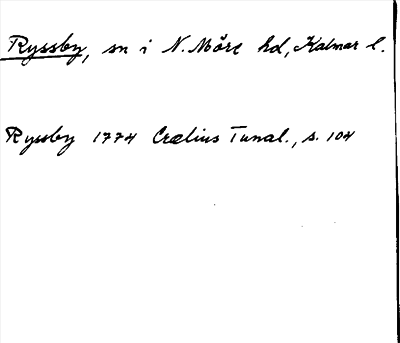 Ryssby, sn i N. Möre hd, Kalmar l.
Ryssby 1774 Crælius Tunal., s. 104